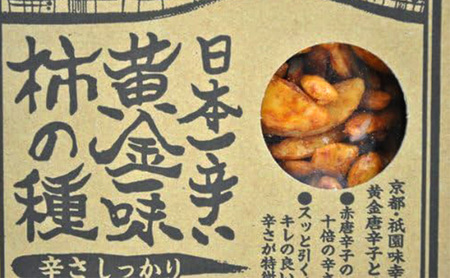 日本一辛い
黄金一味
柿の種
辛さしっかり
京都・祇園味
黄金唐辛子と
●赤唐辛子の
十倍の辛さ
●スッと引く
キレの良い
辛さが特